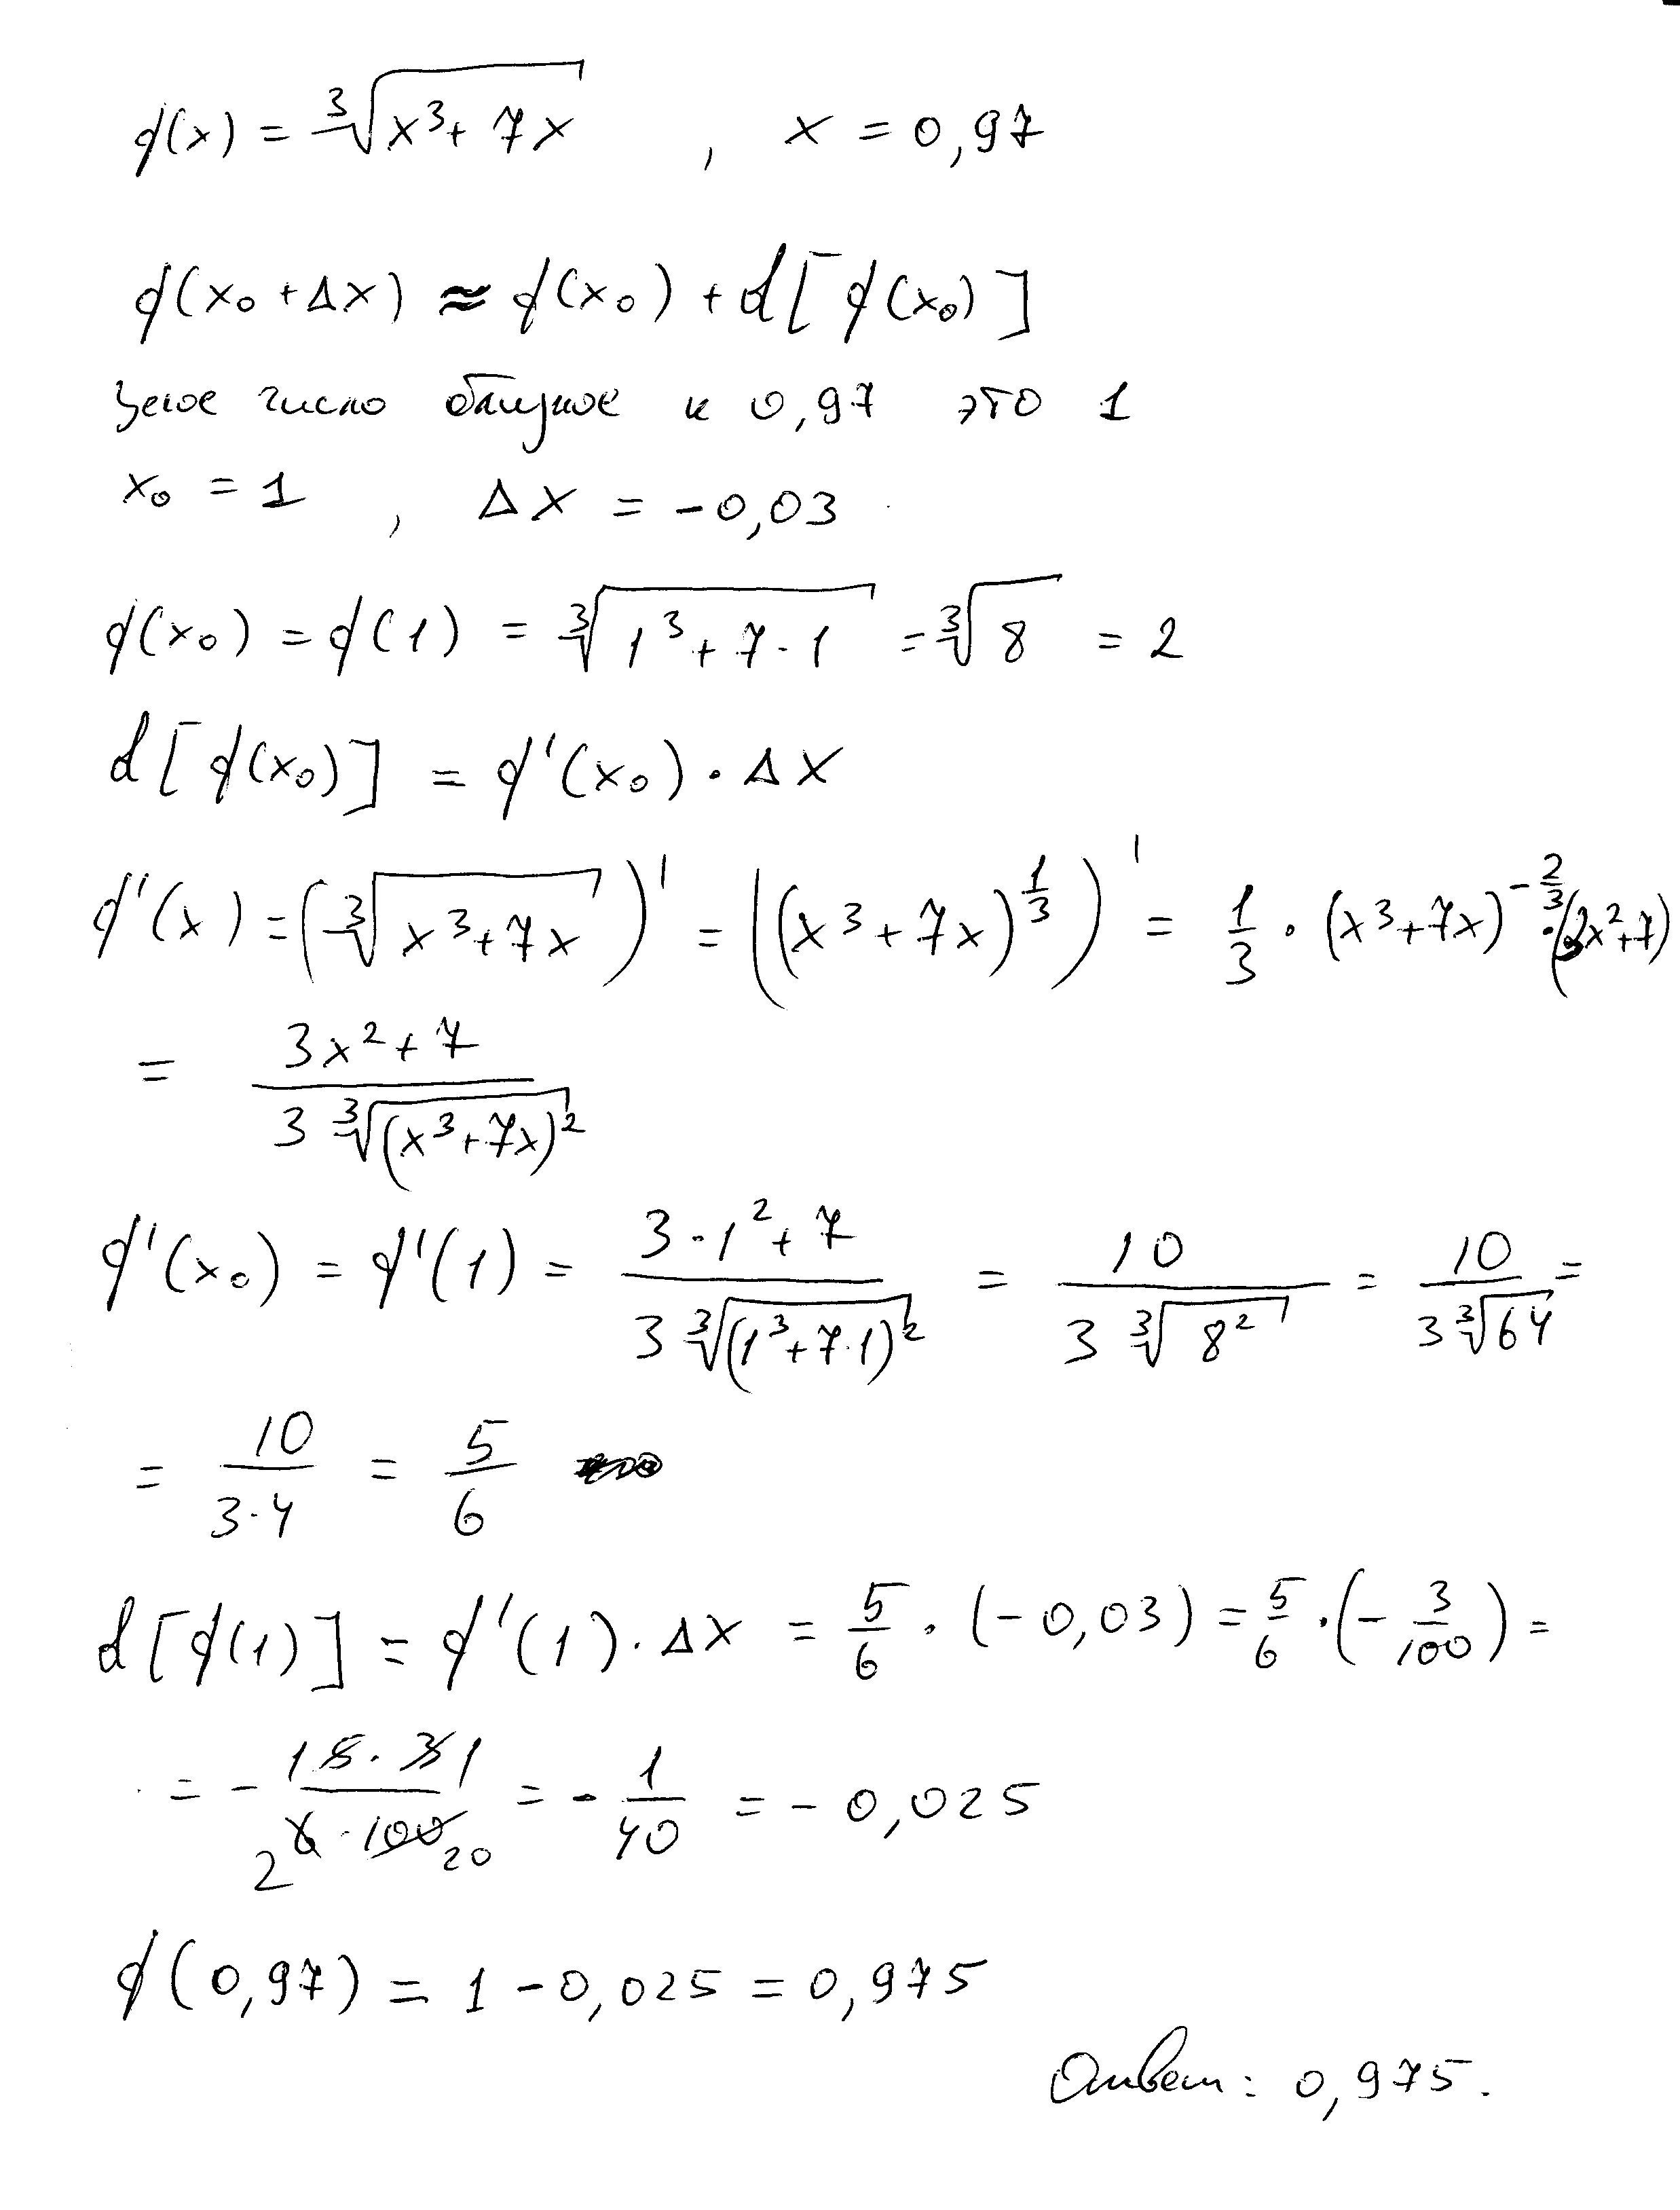 f(x) = ∛(x³ + 7x) , x = 0,97
f(x₀ + Δx) ≈ f(x₀) + d[f(x₀)]
Целое число близкое к 0,97 это 1
x₀ = 1 , Δx = -0,03
f(x₀) = f(1) = ∛(1³ + 7·1) = ∛8 = 2
d[f(x₀)] = f'(x₀) · Δx
f'(x) = (∛(x³ + 7x))' = ((x³ + 7x)^(1/3))' = 1/3 · (x³ + 7x)^(-2/3) · (3x² + 7)
= (3x² + 7) / (3∛(x³ + 7x)²)
f'(x₀) = f'(1) = (3·1² + 7) / (3∛(1³ + 7·1)²) = 10 / (3∛8²) = 10 / (3∛64) =
= 10/(3·4) = 5/6
d[f(1)] = f'(1) · Δx = 5/6 · (-0,03) = 5/6 · (-3/100) =
= - (1 5 · 3 1)/(2 6 · 100 20) = - 1/40 = - 0,025
f(0,97) = 1 - 0,025 = 0,975
Ответ: 0,975.